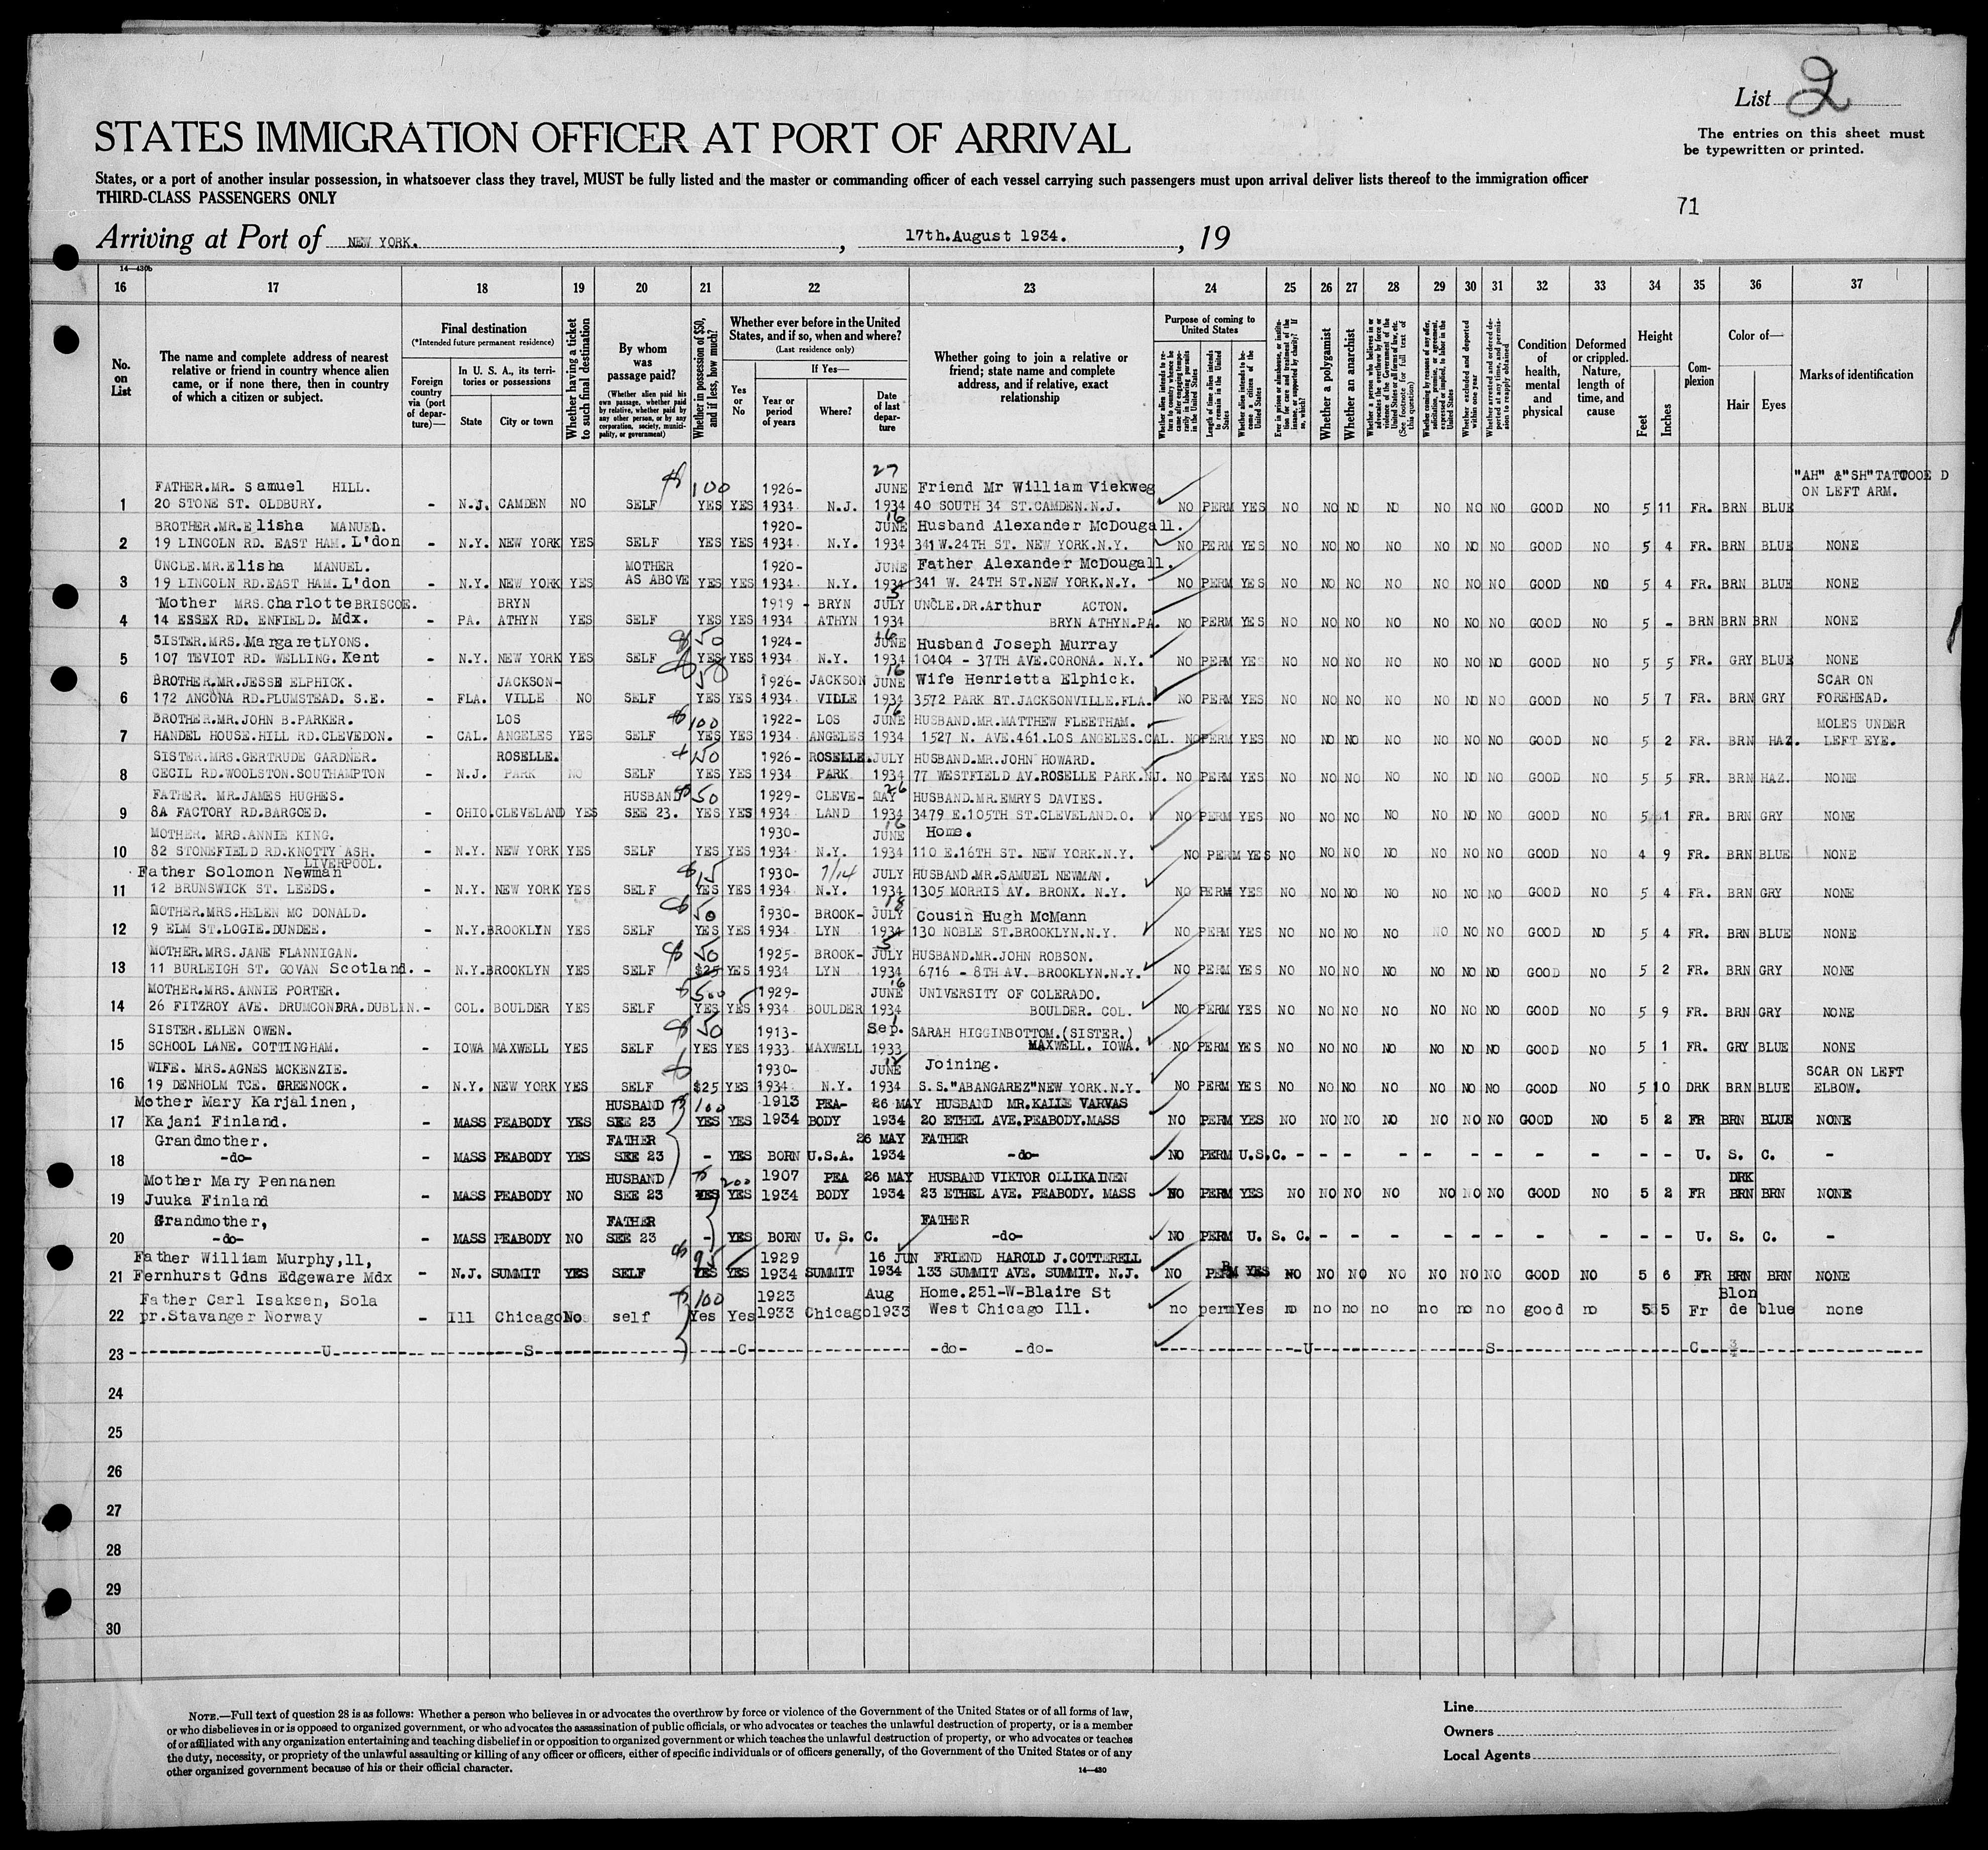 List 2
STATES IMMIGRATION OFFICER AT PORT OF ARRIVAL
The entries on this sheet must
be typewritten or printed.
States, or a port of another insular possession, in whatsoever class they travel, MUST be fully listed and the master or commanding officer of each vessel carrying such passengers must upon arrival deliver lists thereof to the immigration officer
THIRD-CLASS PASSENGERS ONLY
71
Arriving at Port of NEW YORK. , 17th.August 1934. , 19
14—430b
16 17 18 19 20 21 22 23 24 25 26 27 28 29 30 31 32 33 34 35 36 37
No. on List
The name and complete address of nearest relative or friend in country whence alien came, or if none there, then in country of which a citizen or subject.
Final destination
(*Intended future permanent residence)
Foreign country via (port of departure)—
In U. S. A., its territories or possessions
State
City or town
Whether having a ticket to such final destination
By whom was passage paid?
(Whether alien paid his own passage, whether paid by relative, whether paid by any other person, or by any corporation, society, municipality, or government)
Whether in possession of $50, and if less, how much?
Whether ever before in the United States, and if so, when and where?
(Last residence only)
Yes or No
If Yes—
Year or period of years
Where?
Date of last departure
Whether going to join a relative or friend; state name and complete address, and if relative, exact relationship
Purpose of coming to United States
Whether alien intends to return to country whence he came after engaging temporarily in laboring pursuits in the United States
Length of time alien intends to remain in the United States
Whether alien intends to become a citizen of the United States
Ever in prison or almshouse, or institution for care and treatment of the insane, or supported by charity? If so, which?
Whether a polygamist
Whether an anarchist
Whether a person who believes in or advocates the overthrow by force or violence of the Government of the United States or all forms of law, etc. (See footnote for full text of this question)
Whether coming by reason of any offer, solicitation, promise, or agreement, expressed or implied, to labor in the United States
Whether excluded and deported within one year
Whether arrested and ordered deported at any time, and permission to reapply obtained
Condition of health, mental and physical
Deformed or crippled. Nature, length of time, and cause
Height
Feet
Inches
Complexion
Color of—
Hair
Eyes
Marks of identification
FATHER.MR. Samuel HILL. $ 100 1926- 27 JUNE Friend Mr William Viekweg "AH" &"SH"TATTOOE D
1 20 STONE ST. OLDBURY. - N.J. CAMDEN NO SELF YES YES 1934 N.J. 1934 40 SOUTH 34 ST.CAMDEN.N.J. NO PERM YES NO NO NO NO NO NO NO GOOD NO 5 11 FR. BRN BLUE ON LEFT ARM.
BROTHER.MR.Elisha MANUEL. 1920- 16 JUNE Husband Alexander McDougall.
2 19 LINCOLN RD. EAST HAM. L'don - N.Y. NEW YORK YES SELF YES YES 1934 N.Y. 1934 341 W.24TH ST. NEW YORK.N.Y. NO PERM YES NO NO NO NO NO NO NO GOOD NO 5 4 FR. BRN BLUE NONE
UNCLE.MR.Elisha MANUEL. MOTHER 1920- JUNE Father Alexander McDougall.
3 19 LINCOLN RD.EAST HAM.L'don - N.Y. NEW YORK YES AS ABOVE YES YES 1934 N.Y. 1934 341 W. 24TH ST.NEW YORK.N.Y. NO PERM YES NO NO NO NO NO NO NO GOOD NO 5 4 FR. BRN BLUE NONE
Mother MRS.Charlotte BRISCOE. BRYN 1919 - BRYN 5 JULY UNCLE.DR.Arthur ACTON.
4 14 ESSEX RD. ENFIELD. Mdx. - PA. ATHYN YES SELF YES YES 1934 ATHYN 1934 BRYN ATHYN.PA. NO PERM YES NO NO NO NO NO NO NO GOOD NO 5 - BRN BRN BRN NONE
SISTER.MRS.MargaretLYONS. $ 50 1924- 16 JUNE Husband Joseph Murray
5 107 TEVIOT RD. WELLING. Kent - N.Y. NEW YORK YES SELF YES YES 1934 N.Y. 1934 10404 - 37TH AVE.CORONA. N.Y. NO PERM YES NO NO NO NO NO NO NO GOOD NO 5 5 FR. GRY BLUE NONE
BROTHER.MR.JESSE ELPHICK. JACKSON- $ 50 1926- JACKSON 16 JUNE Wife Henrietta Elphick. SCAR ON
6 172 ANCONA RD.PLUMSTEAD. S.E. - FLA. VILLE NO SELF YES YES 1934 VILLE 1934 3572 PARK ST.JACKSONVILLE.FLA. NO PERM YES NO NO NO NO NO NO NO GOOD NO 5 7 FR. BRN GRY FOREHEAD.
BROTHER.MR.JOHN B.PARKER. LOS $ 100 1922- LOS 16 JUNE HUSBAND.MR.MATTHEW FLEETHAM. MOLES UNDER
7 HANDEL HOUSE.HILL RD.CLEVEDON. - CAL. ANGELES YES SELF YES YES 1934 ANGELES 1934 1527 N. AVE.461.LOS ANGELES.CAL. NO PERM YES NO NO NO NO NO NO NO GOOD NO 5 2 FR. BRN HAZ. LEFT EYE.
SISTER.MRS.GERTRUDE GARDNER. ROSELLE. $ 50 1926- ROSELLE. JULY HUSBAND.MR.JOHN HOWARD.
8 CECIL RD.WOOLSTON.SOUTHAMPTON - N.J. PARK NO SELF YES YES 1934 PARK 1934 77 WESTFIELD AV.ROSELLE PARK.NJ. NO PERM YES NO NO NO NO NO NO NO GOOD NO 5 5 FR. BRN HAZ. NONE
FATHER. MR.JAMES HUGHES. HUSBAND $ 50 1929- CLEVE- 26 MAY HUSBAND.MR.EMRYS DAVIES.
9 8A FACTORY RD.BARGOED. - OHIO.CLEVELAND YES SEE 23. YES YES 1934 LAND 1934 3479 E.105TH ST.CLEVELAND.O. NO PERM YES NO NO NO NO NO NO NO GOOD NO 5 1 FR. BRN GRY NONE
MOTHER. MRS.ANNIE KING. 1930- 16 JUNE Home.
10 82 STONEFIELD RD.KNOTTY ASH. - N.Y. NEW YORK YES SELF YES YES 1934 N.Y. 1934 110 E.16TH ST. NEW YORK.N.Y. NO PERM YES NO NO NO NO NO NO NO GOOD NO 4 9 FR. BRN BLUE NONE
LIVERPOOL.
Father Solomon Newman $ 15 1930- 7/14 JULY HUSBAND.MR.SAMUEL NEWMAN.
11 12 BRUNSWICK ST. LEEDS. - N.Y. NEW YORK YES SELF YES YES 1934 N.Y. 1934 1305 MORRIS AV. BRONX. N.Y. NO PERM YES NO NO NO NO NO NO NO GOOD NO 5 4 FR. BRN GRY NONE
MOTHER.MRS.HELEN MC DONALD. $ 50 1930- BROOK- 18 JULY Cousin Hugh McMann
12 9 ELM ST.LOGIE.DUNDEE. - N.Y.BROOKLYN YES SELF YES YES 1934 LYN 1934 130 NOBLE ST.BROOKLYN.N.Y. NO PERM YES NO NO NO NO NO NO NO GOOD NO 5 4 FR. BRN BLUE NONE
MOTHER.MRS.JANE FLANNIGAN. $ 50 1925- BROOK- 5 JULY HUSBAND.MR.JOHN ROBSON.
13 11 BURLEIGH ST. GOVAN Scotland. - N.Y.BROOKLYN YES SELF $25 YES 1934 LYN 1934 6716 - 8TH AV. BROOKLYN.N.Y. NO PERM YES NO NO NO NO NO NO NO GOOD NO 5 2 FR. BRN GRY NONE
MOTHER.MRS.ANNIE PORTER. $ 500 1929- 16 JUNE UNIVERSITY OF COLERADO.
14 26 FITZROY AVE. DRUMCONDRA.DUBLIN. - COL. BOULDER YES SELF YES YES 1934 BOULDER 1934 BOULDER. COL. NO PERM YES NO NO NO NO NO NO NO GOOD NO 5 9 FR. BRN GRY NONE
SISTER.ELLEN OWEN. $ 50 1913- 1 Sep. SARAH HIGGINBOTTOM.(SISTER.)
15 SCHOOL LANE. COTTINGHAM. - IOWA MAXWELL YES SELF YES YES 1933 MAXWELL 1933 MAXWELL. IOWA. NO PERM YES NO NO NO NO NO NO NO GOOD NO 5 1 FR. GRY BLUE NONE
WIFE. MRS.AGNES MCKENZIE. $ 1930- JUNE Joining. SCAR ON LEFT
16 19 DENHOLM TCE. GREENOCK. - N.Y. NEW YORK YES SELF $25 YES 1934 N.Y. 1934 S.S."ABANGAREZ"NEW YORK.N.Y. NO PERM YES NO NO NO NO NO NO NO GOOD NO 5 10 DRK BRN BLUE ELBOW.
Mother Mary Karjalinen, HUSBAND $ 100 1913 PEA- 26 MAY HUSBAND MR.KALLE VARVAS
17 Kajani Finland. - MASS PEABODY YES SEE 23 YES YES 1934 BODY 1934 20 ETHEL AVE.PEABODY.MASS NO PERM YES NO NO NO NO NO NO NO GOOD NO 5 2 FR BRN BLUE NONE
Grandmother. FATHER 26 MAY FATHER
18 -do- - MASS PEABODY YES SEE 23 - YES BORN U.S.A. 1934 -do- NO PERM U.S.C. - - - - - - - - - - - U. S. C. -
Mother Mary Pennanen HUSBAND $ 200 1907 PEA 26 MAY HUSBAND VIKTOR OLLIKAINEN DRK
19 Juuka Finland - MASS PEABODY NO SEE 23 YES YES 1934 BODY 1934 23 ETHEL AVE. PEABODY. MASS NO PERM YES NO NO NO NO NO NO NO GOOD NO 5 2 FR BRN BRN NONE
Grandmother, FATHER FATHER
20 -do- - MASS PEABODY NO SEE 23 - YES BORN U. S. C. -do- NO PERM U. S. C. - - - - - - - - - - U. S. C. -
Father William Murphy,11, $ 95 1929 16 JUN FRIEND HAROLD J.COTTERELL
21 Fernhurst Gdns Edgeware Mdx - N.J. SUMMIT YES SELF YES YES 1934 SUMMIT 1934 133 SUMMIT AVE. SUMMIT. N.J. NO PERM YES NO NO NO NO NO NO NO GOOD NO 5 6 FR BRN BRN NONE
Father Carl Isaksen, Sola $ 100 1923 Aug Home.251-W-Blaire St Blon
22 pr.Stavanger Norway - Ill Chicago No self Yes Yes 1933 Chicago 1933 West Chicago Ill. no perm Yes no no no no no no no good no 5 5 Fr de blue none
23 - U - S - C - -do- -do- - U - S - C - 3/4 -
24
25
26
27
28
29
30
NOTE.—Full text of question 28 is as follows: Whether a person who believes in or advocates the overthrow by force or violence of the Government of the United States or of all forms of law,
or who disbelieves in or is opposed to organized government, or who advocates the assassination of public officials, or who advocates or teaches the unlawful destruction of property, or is a member
of or affiliated with any organization entertaining and teaching disbelief in or opposition to organized government or which teaches the unlawful destruction of property, or who advocates or teaches
the duty, necessity, or propriety of the unlawful assaulting or killing of any officer or officers, either of specific individuals or of officers generally, of the Government of the United States or of any
other organized government because of his or their official character.
14—430
Line
Owners
Local Agents